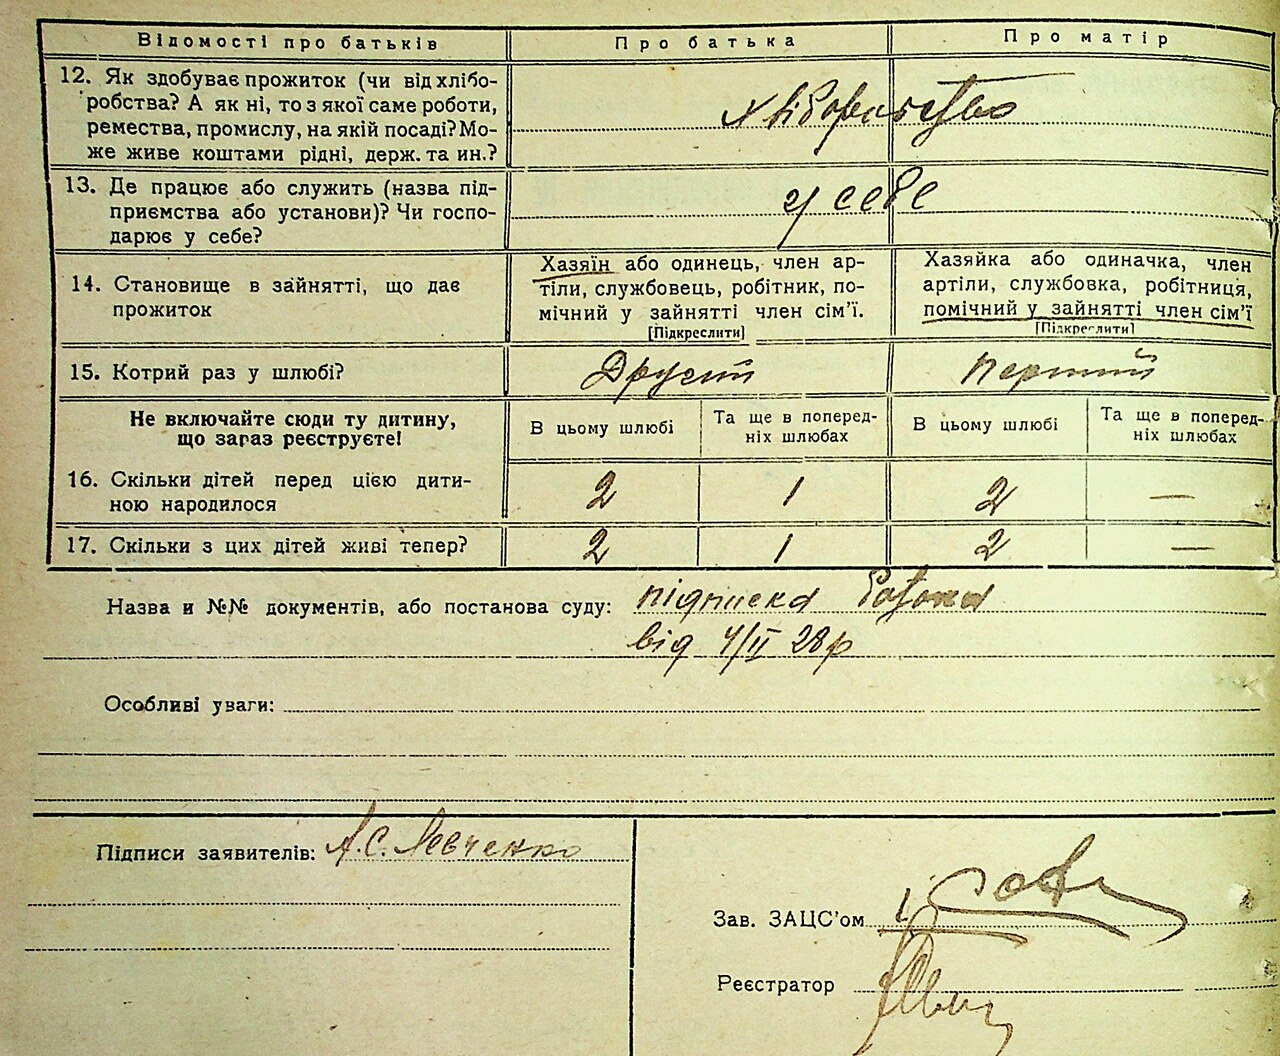 Відомості про батьків Про батька Про матір
12. Як здобуває прожиток (чи від хлібо-
робства? А як ні, то з якої саме роботи,
ремества, промислу, на якій посаді? Мо-
же живе коштами рідні, держ. та ин.?
Хліборобство
13. Де працює або служить (назва під-
приємства або установи)? Чи госпо-
дарює у себе?
у себе
14. Становище в зайнятті, що дає
прожиток
Хазяїн або одинець, член ар-
тіли, службовець, робітник, по-
мічний у зайнятті член сім'ї.
[Підкреслити]
Хазяйка або одиначка, член
артіли, службовка, робітниця,
помічний у зайнятті член сім'ї
[Підкреслити]
15. Котрий раз у шлюбі? Другий Перший
Не включайте сюди ту дитину,
що зараз реєструєте!
В цьому шлюбі
Та ще в поперед-
ніх шлюбах
В цьому шлюбі
Та ще в поперед-
ніх шлюбах
16. Скільки дітей перед цією дити-
ною народилося
2 1 2 —
17. Скільки з цих дітей живі тепер? 2 1 2 —
Назва и №№ документів, або постанова суду: підписка батька
від 4/II 28р
Особливі уваги:
Підписи заявителів: А.С. Левченко
Зав. ЗАЦС'ом
Реєстратор